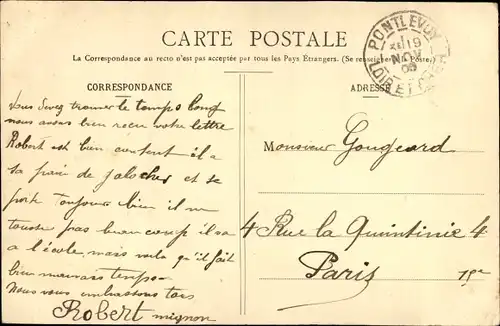 CARTE POSTALE
La Correspondance au recto n'est pas acceptée par tous les Pays Étrangers. (Se renseigner à la Poste.)
PONTLEVOY
19
NOV
LOIR ET CHER
CORRESPONDANCE
Vous devez trouver le temps long
nous avons bien recu votre lettre
Robert est bien content il a
sa paire de galoches et se
porte toujours bien il ne
tousse pas beaucoup il va
a l'école, mais voila qu'il fait
bien mauvais temps
Nous vous embrassons tous
Robert mignon
ADRESSE
Monsieur Gougeard
4 Rue la Quintinie 4
Paris 15e